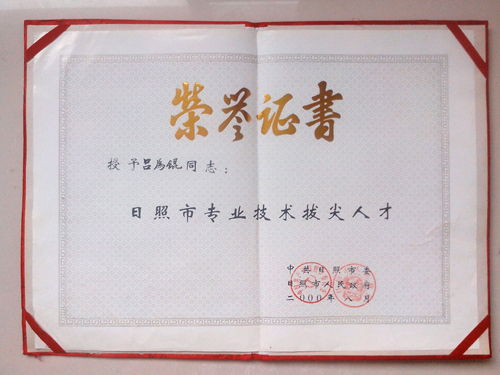 荣誉证書
授予吕为锟同志:
日照市专业技术拔尖人才
中共日照市委
日照市人民政府
二〇〇〇年八月